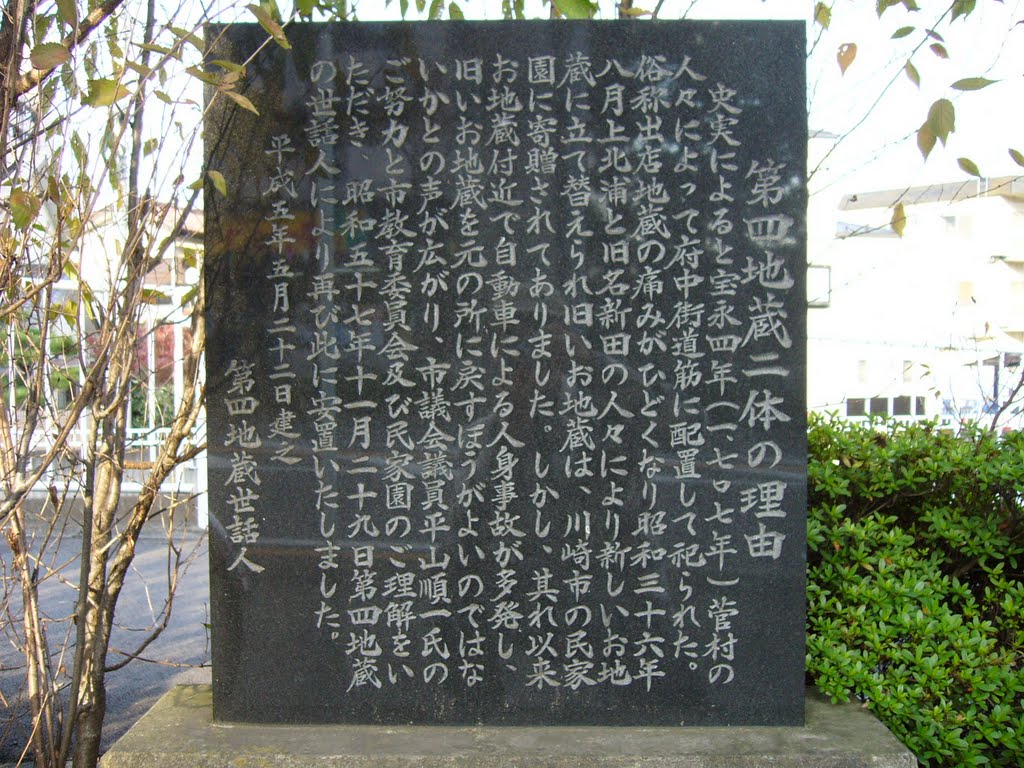 第四地蔵二体の理由
史実によると宝永四年(一、七〇七年)菅村の
人々によって府中街道筋に配置して祀られた。
俗称出店地蔵の痛みがひどくなり昭和三十六年
八月上北浦と旧名新田の人々により新しいお地
蔵に立て替えられ旧いお地蔵は、川崎市の民家
園に寄贈されてありました。しかし、其れ以来
お地蔵付近で自動車による人身事故が多発し、
旧いお地蔵を元の所に戻すほうがよいのではな
いかとの声が広がり、市議会議員平山順一氏の
ご努力と市教育委員会及び民家園のご理解をい
ただき、昭和五十七年十一月二十九日第四地蔵
の世話人により再び此に安置いたしました。
平成五年五月二十二日建之
第四地蔵世話人